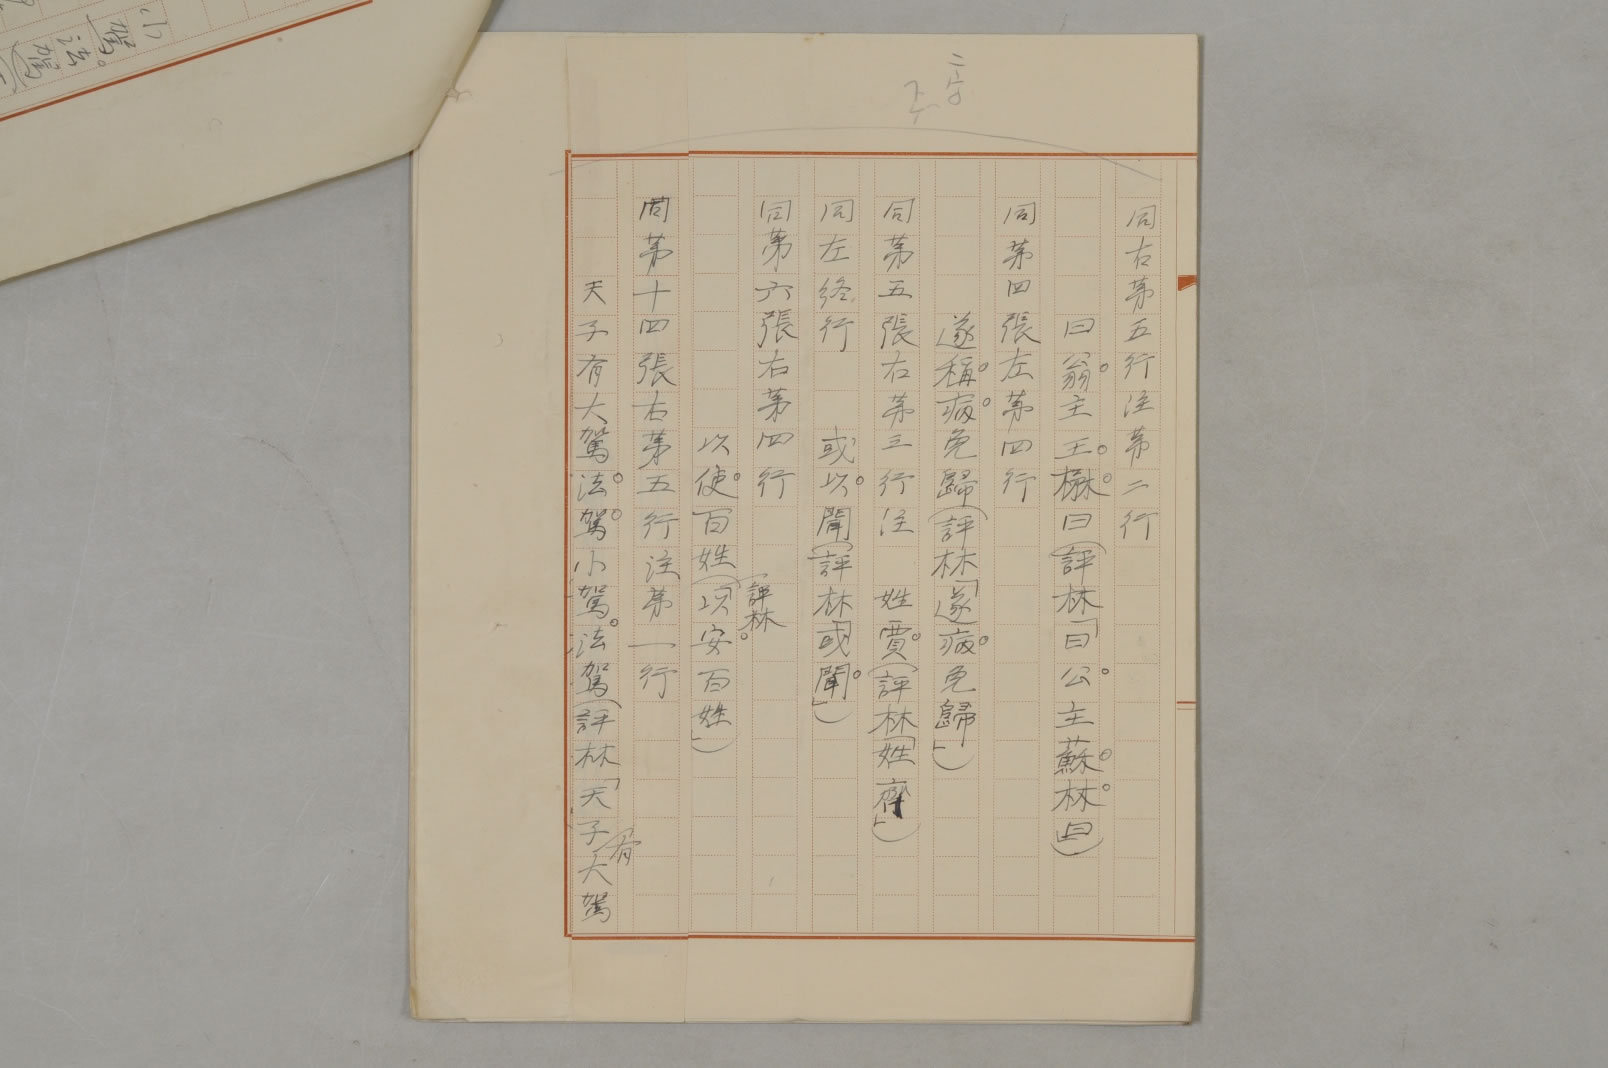 二字
下
同右第五行注第二行
曰翁。主王。楙。曰(評林「曰公。主蘇。林。曰)
同第四張左第四行
遂稱。病。免歸(評林「遂病。免歸」)
同第五張右第三行注　姓賈。(評林「姓齊」)
同左終行　或以。聞(評林「或聞。」)
同第六張右第四行
以使。百姓(評林「以安。百姓)
同第十四張右第五行注第一行
天子有大駕法。駕。小駕。法駕(評林「天子有大駕
小駕。法駕